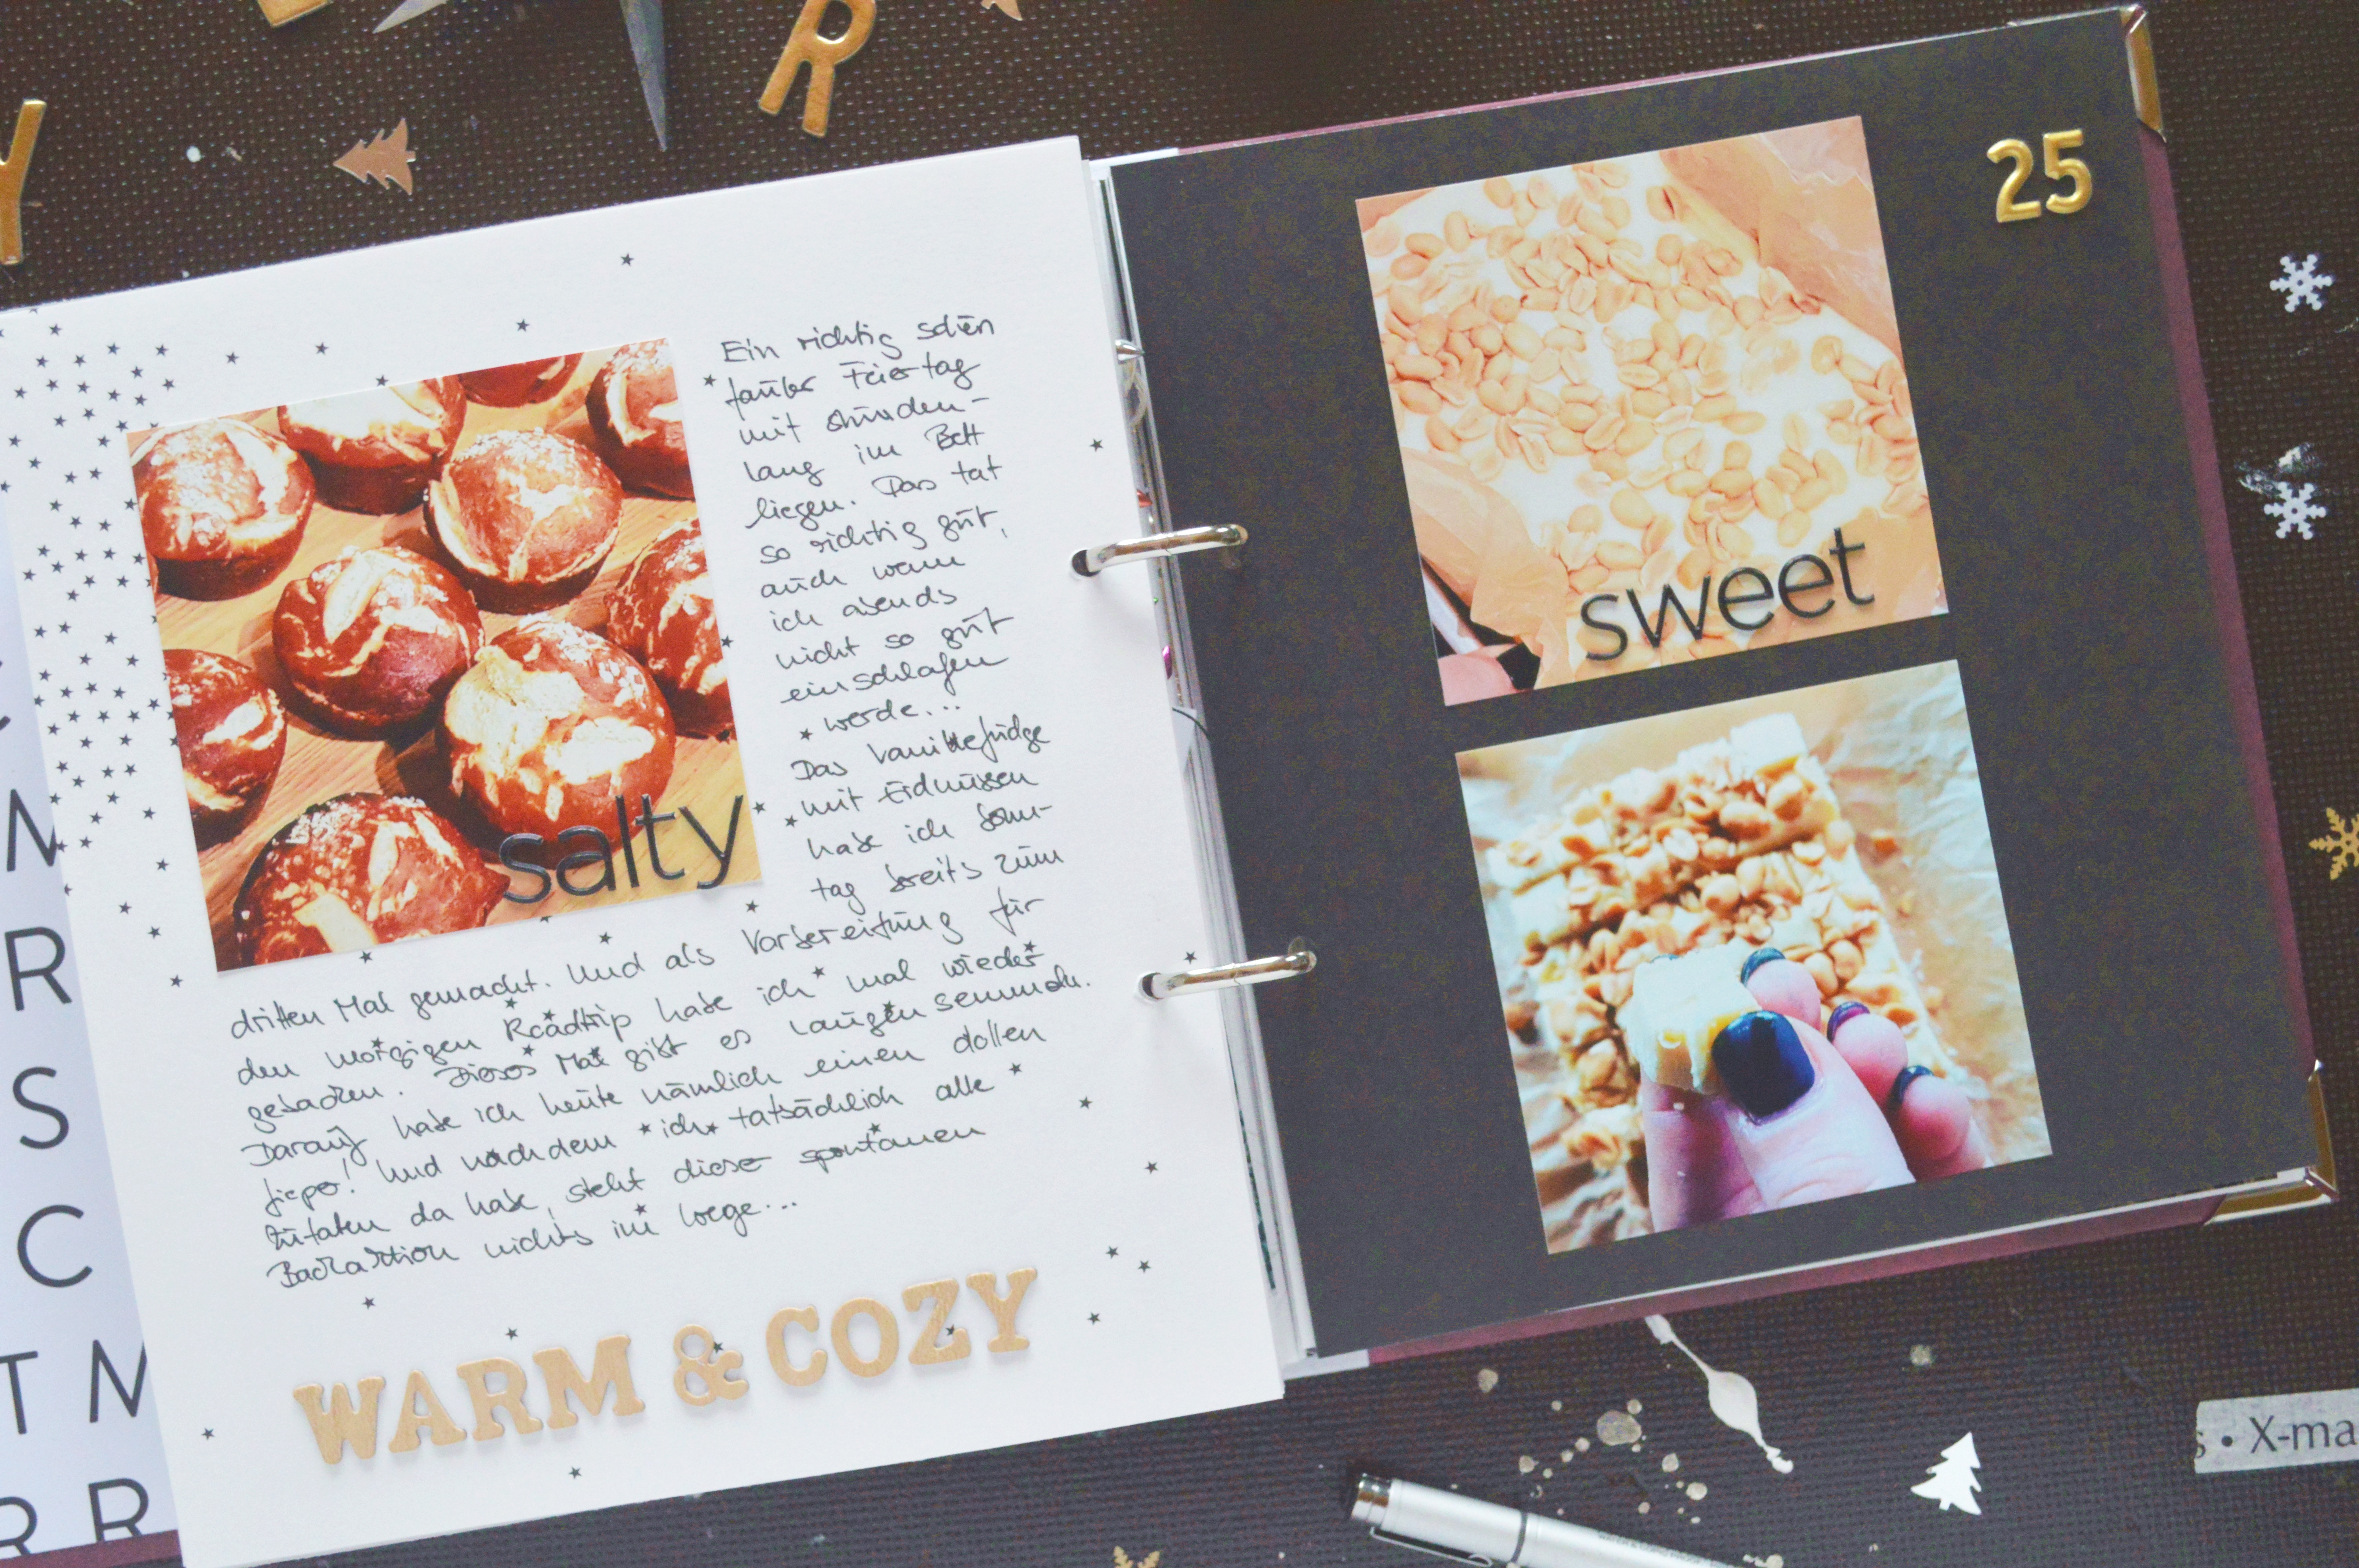 Y
R
Ein richtig schön
fauler Feiertag
mit stunden-
lang im Bett
liegen. Das tat
so richtig gut,
auch wenn
ich abends
nicht so gut
einschlafen
werde...
Das Vanillefudge
mit Erdnüssen
habe ich Sonn-
tag bereits zum
dritten Mal gemacht. Und als Vorbereitung für
den morgigen Roadtrip habe ich mal wieder
gebacken. Dieses Mal gibt es Laugensemmeln.
Darauf habe ich heute nämlich einen dollen
Jieper! Und nachdem ich tatsächlich alle
Zutaten da habe, steht dieser spontanen
Backaktion nichts im Wege...
salty
WARM & COZY
25
sweet
M
R
S
C
T M
R R
s • X-ma